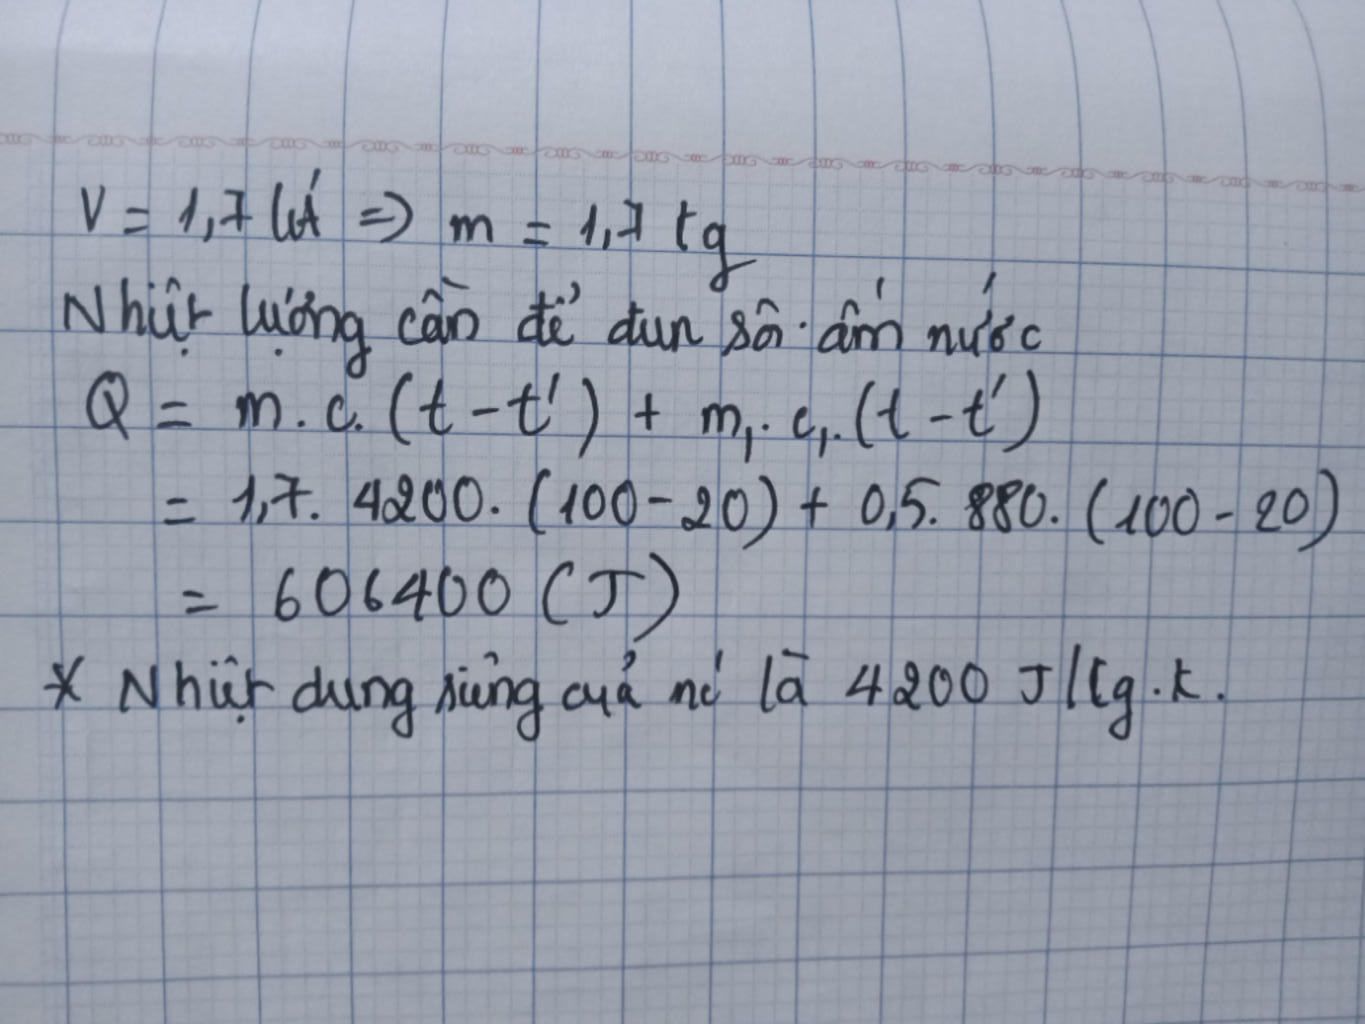 V = 1,7 lít => m = 1,7 kg
Nhiệt lượng cần để đun sôi ấm nước
Q = m.c.(t-t') + m₁.c₁.(t-t')
= 1,7. 4200. (100-20) + 0,5. 880. (100-20)
= 606400 (J)
* Nhiệt dung riêng của nó là 4200 J/kg.k.